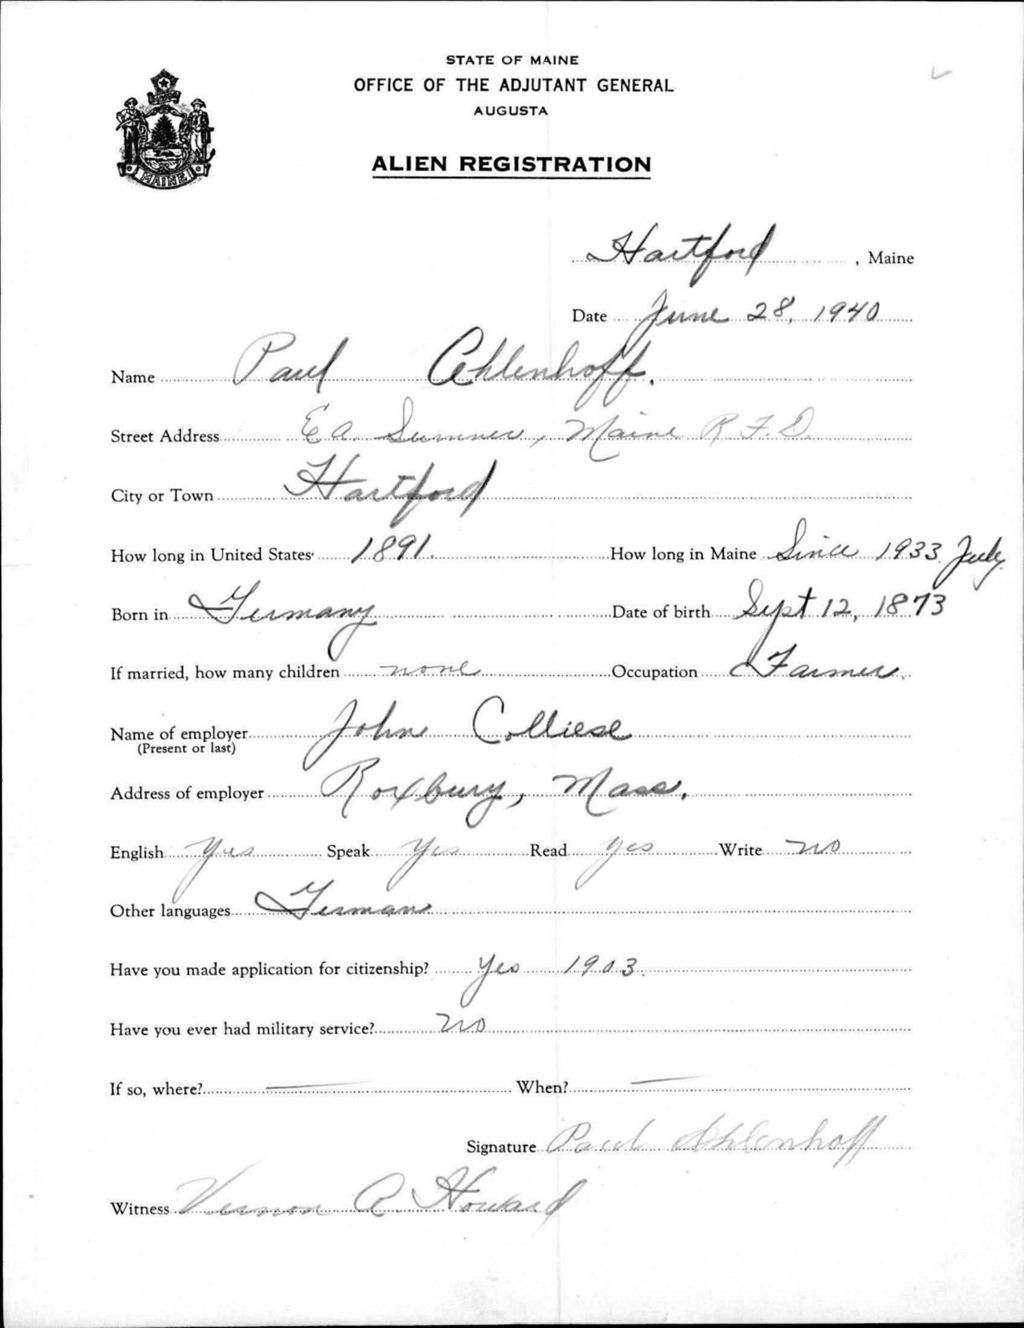 STATE OF MAINE
OFFICE OF THE ADJUTANT GENERAL
AUGUSTA
MAINE
ALIEN REGISTRATION
Hartford, Maine
Date June 28, 1940
Name Paul Ahlenhoff.
Street Address Ea. Sumner, Maine R.F.D.
City or Town Hartford
How long in United States 1891. How long in Maine Since 1933 July
Born in Germany Date of birth Sept 12, 1873
If married, how many children none Occupation Farmer
Name of employer John
(Present or last)
Address of employer Roxbury, Mass.
English Yes Speak Yes Read yes Write no
Other languages German
Have you made application for citizenship? Yes 1903.
Have you ever had military service? no
If so, where? — When? —
Signature Paul Ahlenhoff
Witness Vernon A Howard